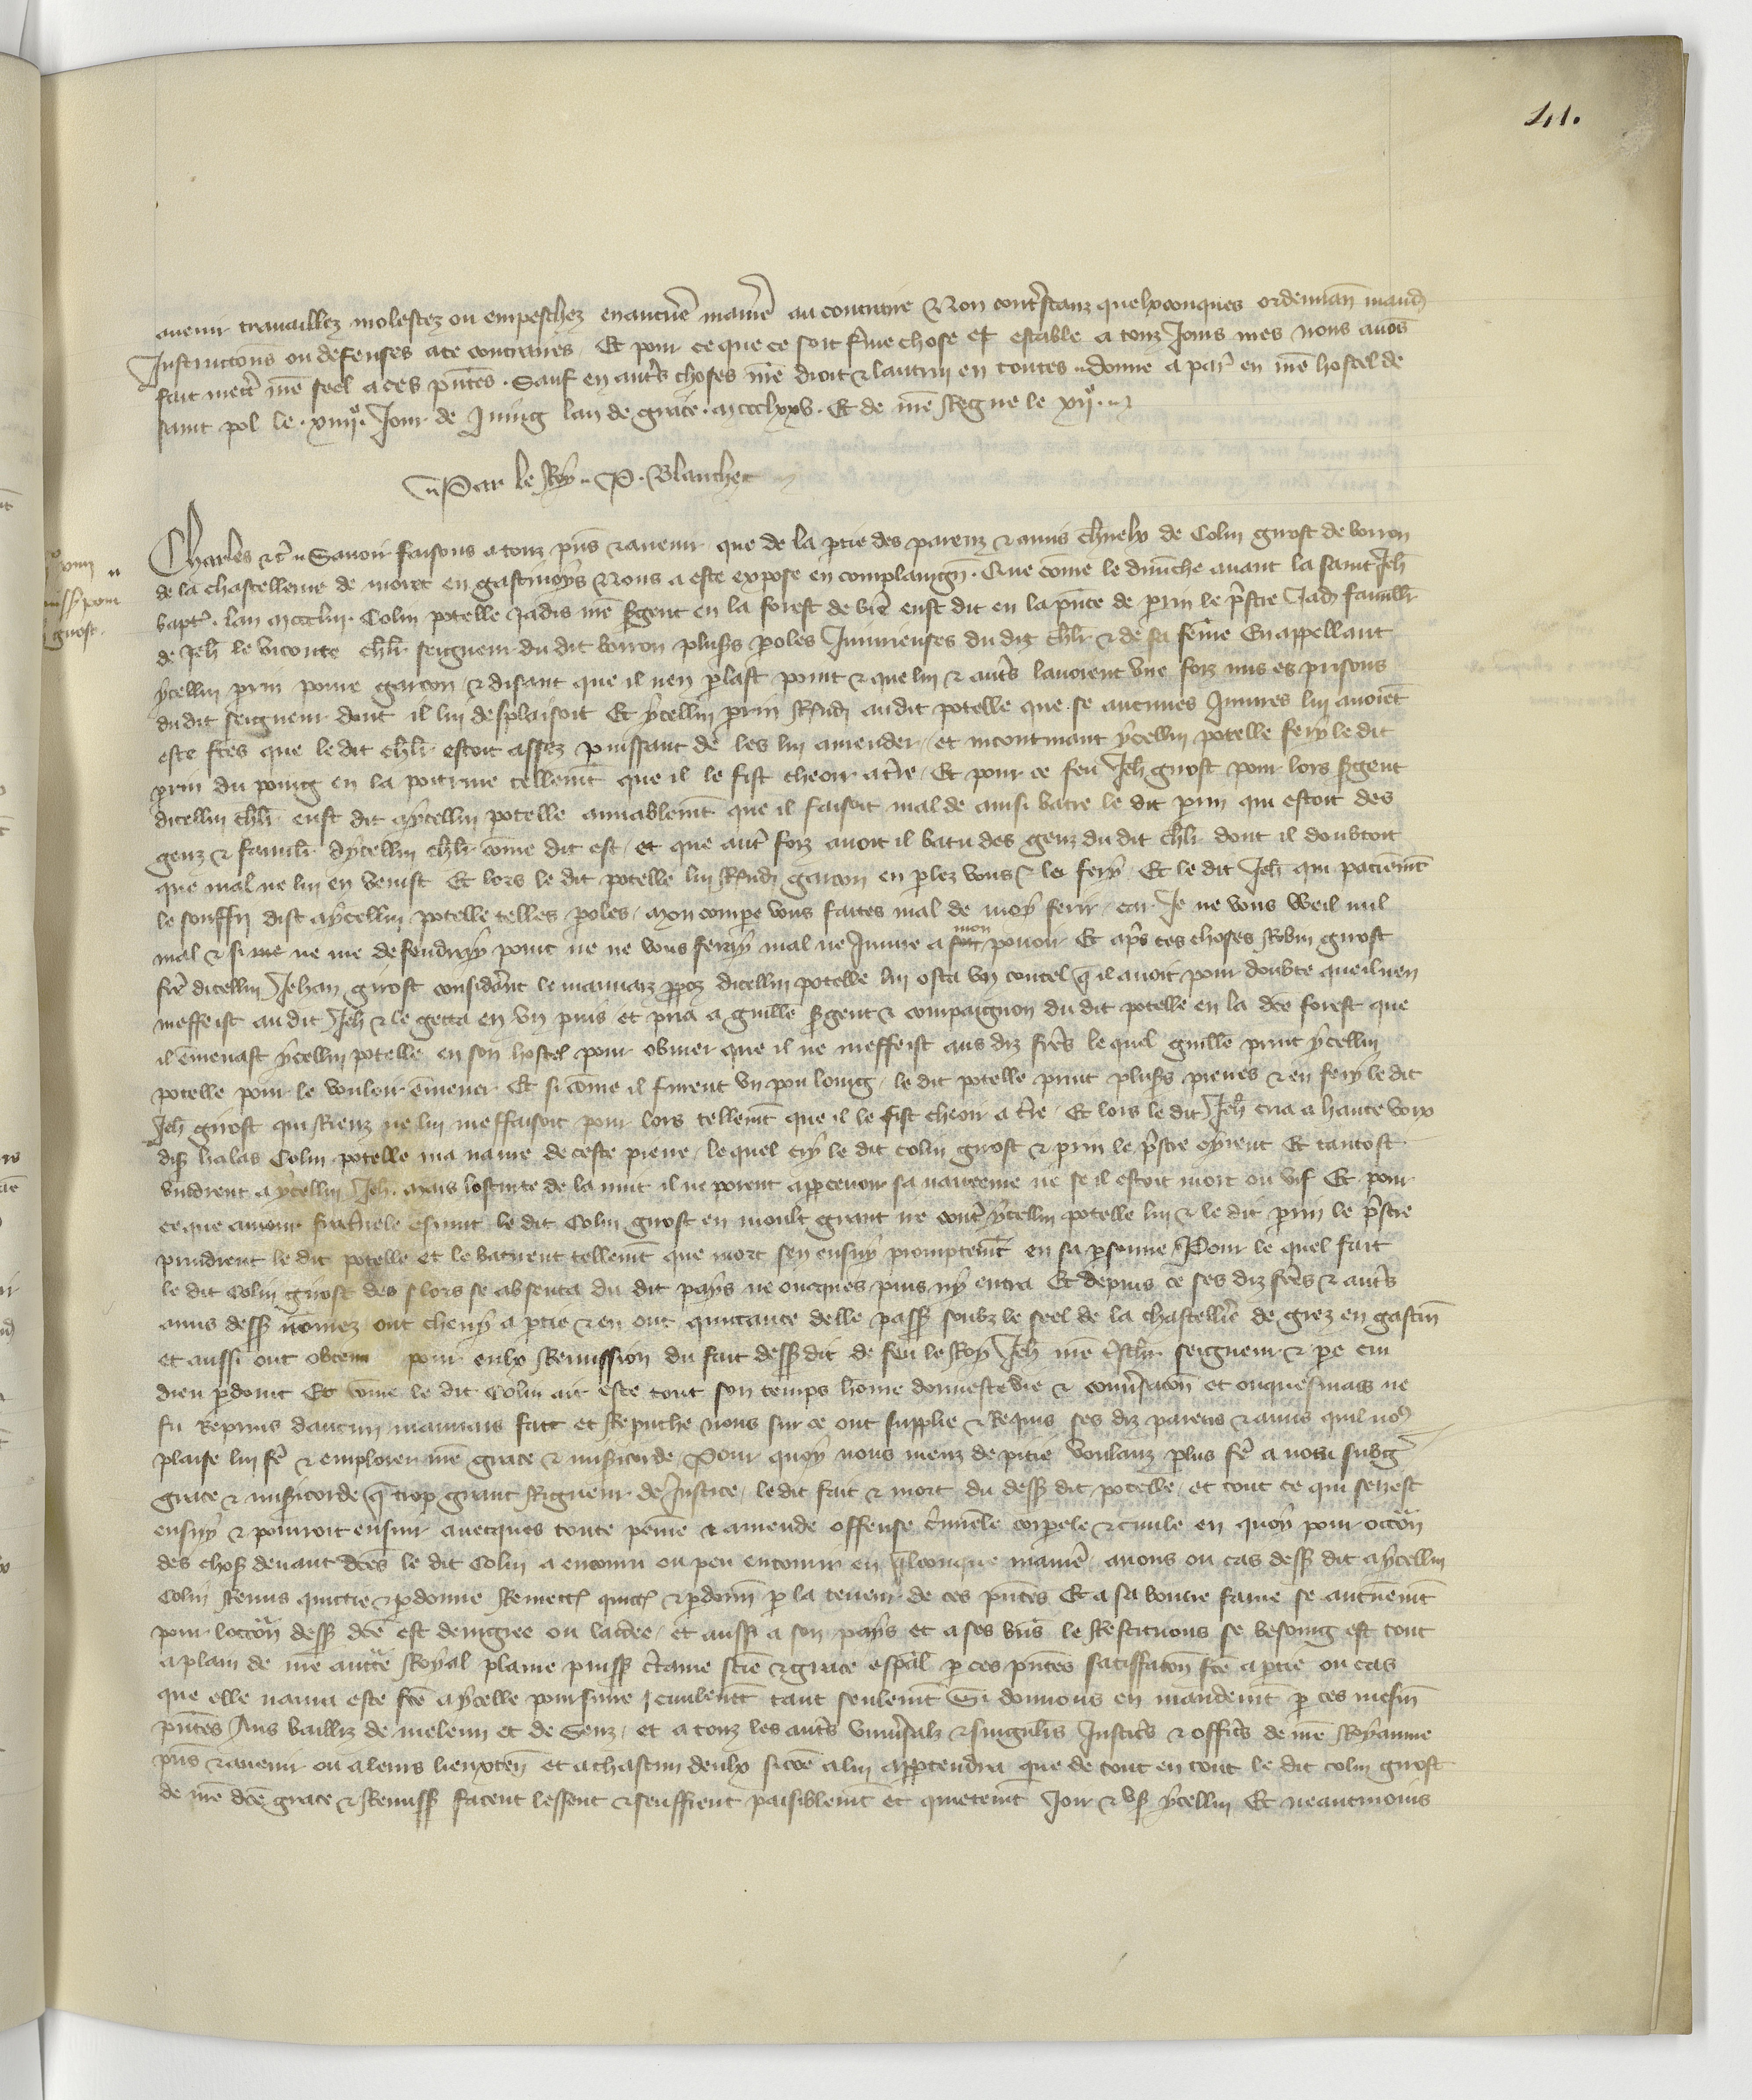 41.
avenir travaillez molestez ou empeschez en aucune maniere au contraire Non contrestanz quelxconques ordenan mand
Instructions ou defenses a ce contraires. Et pour ce que ce soit ferme chose et estable a touz Jours mes nous avons
fait mettre nre seel a ces pntes. Sauf en autres choses nre droit & lautruy en toutes. donne a par en nre hostel de
saint pol le. xiiijo. Jour de Juing lan de grace. mccclxxv. Et de nre Regne le xijo.
Par le Roy. P. Blanchet
Charles etc. Savoir faisons a touz pns & avenir que de la ptie des parenz & amis charnelx de Colin gnost de borron
de la chastellenie de moret en gastinoys Nous a este expose en complaingn. Que come le dimenche avant la saint Jeh
bapt. lan mccclxij. Colin potelle Jadis nre sergent en la forest de biere eust dit en la pnce de perrin le prestre Jadis familier
de Jeh le viconte chlr seigneur du dit borron pluseurs poles Injurieuses du dit chlr & de sa feme En appellant
ycellui prin pour garcon & disant que il nen parlast point & que lui & autres lavoient une foiz mis es prisons
du dit seigneur dont il lui desplaisoit Et ycellui prin Respondi audit potelle que se aucunes Injures lui avoient
este fces que le dit chlr estoit assez puissant de les lui amender / et incontinant ycellui potelle fery le dit
prin du poing en la poitrine tellemt que il le fist cheoir a tre. Et pour ce feu Jeh gnost pour lors sergent
dicellui chlr eust dit a ycellui potelle amiablemt que il faisoit mal de ainsi batre le dit prin qui estoit des
genz & famil dycellui chlr come dit est / et que autre foiz avoit il batu des genz du dit chlr dont il doubtoit
que mal ne lui en venist Et lors le dit potelle lui Respondi garcon en plez vous & le fery. Et le dit Jeh qui paciemt
le souffri dist a ycellui potelle telles poles. mon compe vous faites mal de moy ferir. car Je ne vous vueil nul
mal & si me ne me defendray point ne ne vous feray mal ne Injure a mon povoir Et apres ces choses Robin gnost
frere dicellui Jehan gnost considerant le mauvaiz ppoz dicellui potelle lui osta un coutel que il avoit pour doubte que il nen
meffeist au dit Jeh & le getta en un puis et pria a guille sergent & compaignon du dit potelle en la dce forest que
il emenast ycellui potelle en son hostel pour obvier que il ne meffeist aus diz freres le quel guille print ycellui
potelle pour le vouloir emener Et si come il furent un pou loing. le dit potelle print pluseurs pierres & en fery le dit
Jeh gnost qui Rienz ne lui meffaisoit pour lors tellemt que il le fist cheoir a tre. Et lors le dit Jeh cria a haute voix
dis halas Colin potelle ma navre de ceste pierre. le quel cry le dit colin gnost & prin le prestre oyrent Et tantost
vindrent a ycellui Jeh. mais lostinte de la nuit il ne porent appcevoir sa navreure ne se il estoit mort ou vif Et pour
ce que amour fraternele esmut le dit Colin gnost en moult grant ire contre ycellui potelle lui & le dit prin le prestre
prindrent le dit potelle et le batirent tellemt que mort sen ensuy promptemt en sa psonne. Pour le quel fait
le dit Colin gnost des lors se absenta du dit pays ne oncques puis ny entra Et depuis ce ses diz freres & autres
amis dess nomez ont chevy a ptie & en ont quittance delle passee soubz le seel de la chastellie de grez en gastin
et aussi ont obtenu pour eulx Remission du fait dess dit de feu le Roy Jeh nre treschr seigneur & pere cui
dieu pdoint Et come le dit Colin ait este tout son temps home donneste vie & convsacon et onquesmais ne
fu Repris daucun mauvais fait et Reprouche nous sur ce ont supplie & Requis ses diz parens & amis quil nos
plaise lui fere & emploier nre grace & misicorde Pour quoy nous menz de pitie voulanz plus fere a noz subg
grace & misicorde que trop grant Rigueur de Justice. le dit fait & mort du dess dit potelle. et tout ce qui senest
ensuy & pourroit ensuir avecques toute peinne & amende offense criminele corporele & civile en quoy pour occon
des chos devant dces le dit Colin a encouru ou peu encourir en qlconque maniere. avons ou cas dess dit a ycellui
Colin Remis quittie & pdonne Remett quitt & pdonn p la teneur de ces pntes Et a sa bonne fame se aucunemt
pour loccon dess dce est denigree ou lacdee. et aussi a son pays et a ses bns le Restituons se besoing est tout
a plain de nre aucte Royal plaine puiss ctaine scie & grace espal p ces pntes satisfacon fce a ptie ou cas
que elle naura este fce a ycelle poursuir civilemt tant seulemt Si donnons en mandemt p ces mesm
pntes Aus bailliz de meleun et de Senz. et a touz les autres univsalx & singuliers Justiciers & officiers de nre Royaume
pns & avenir ou a leurs lieuxten et a chascun deulx si coe a lui apptendra que de tout en tout le dit colin gnost
de nre dce grace & Remiss facent lessent & seuffrent paisiblemt et quietemt Joir & us ycellui Et neantmoins